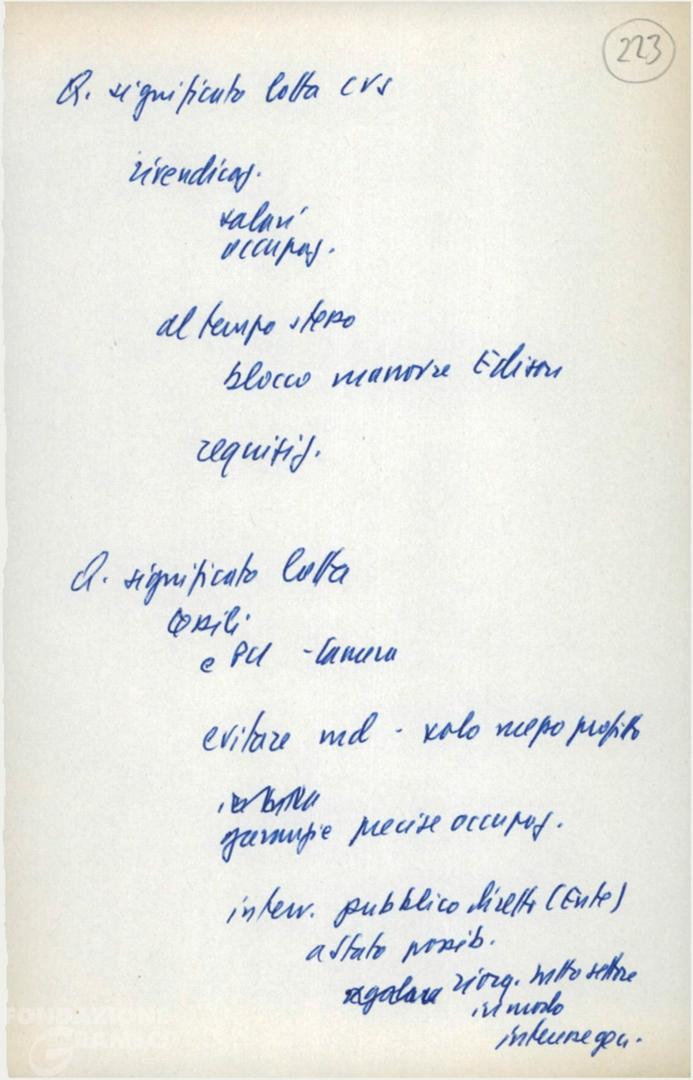 223
Q. significato lotta CVS
rivendicaz.
salari
occupaz.
al tempo stesso
blocco manovre Edison
requisiz.
Q. significato lotta
tessili
e PCI - Camera
evitare md - solo nuovo profitto
garanzie precise occupaz.
interv. pubblico diretto (Ente)
a Stato possib.
riorg. tutto settore
in modo
interesse gen.
FONDAZIONE
GRAMSCI